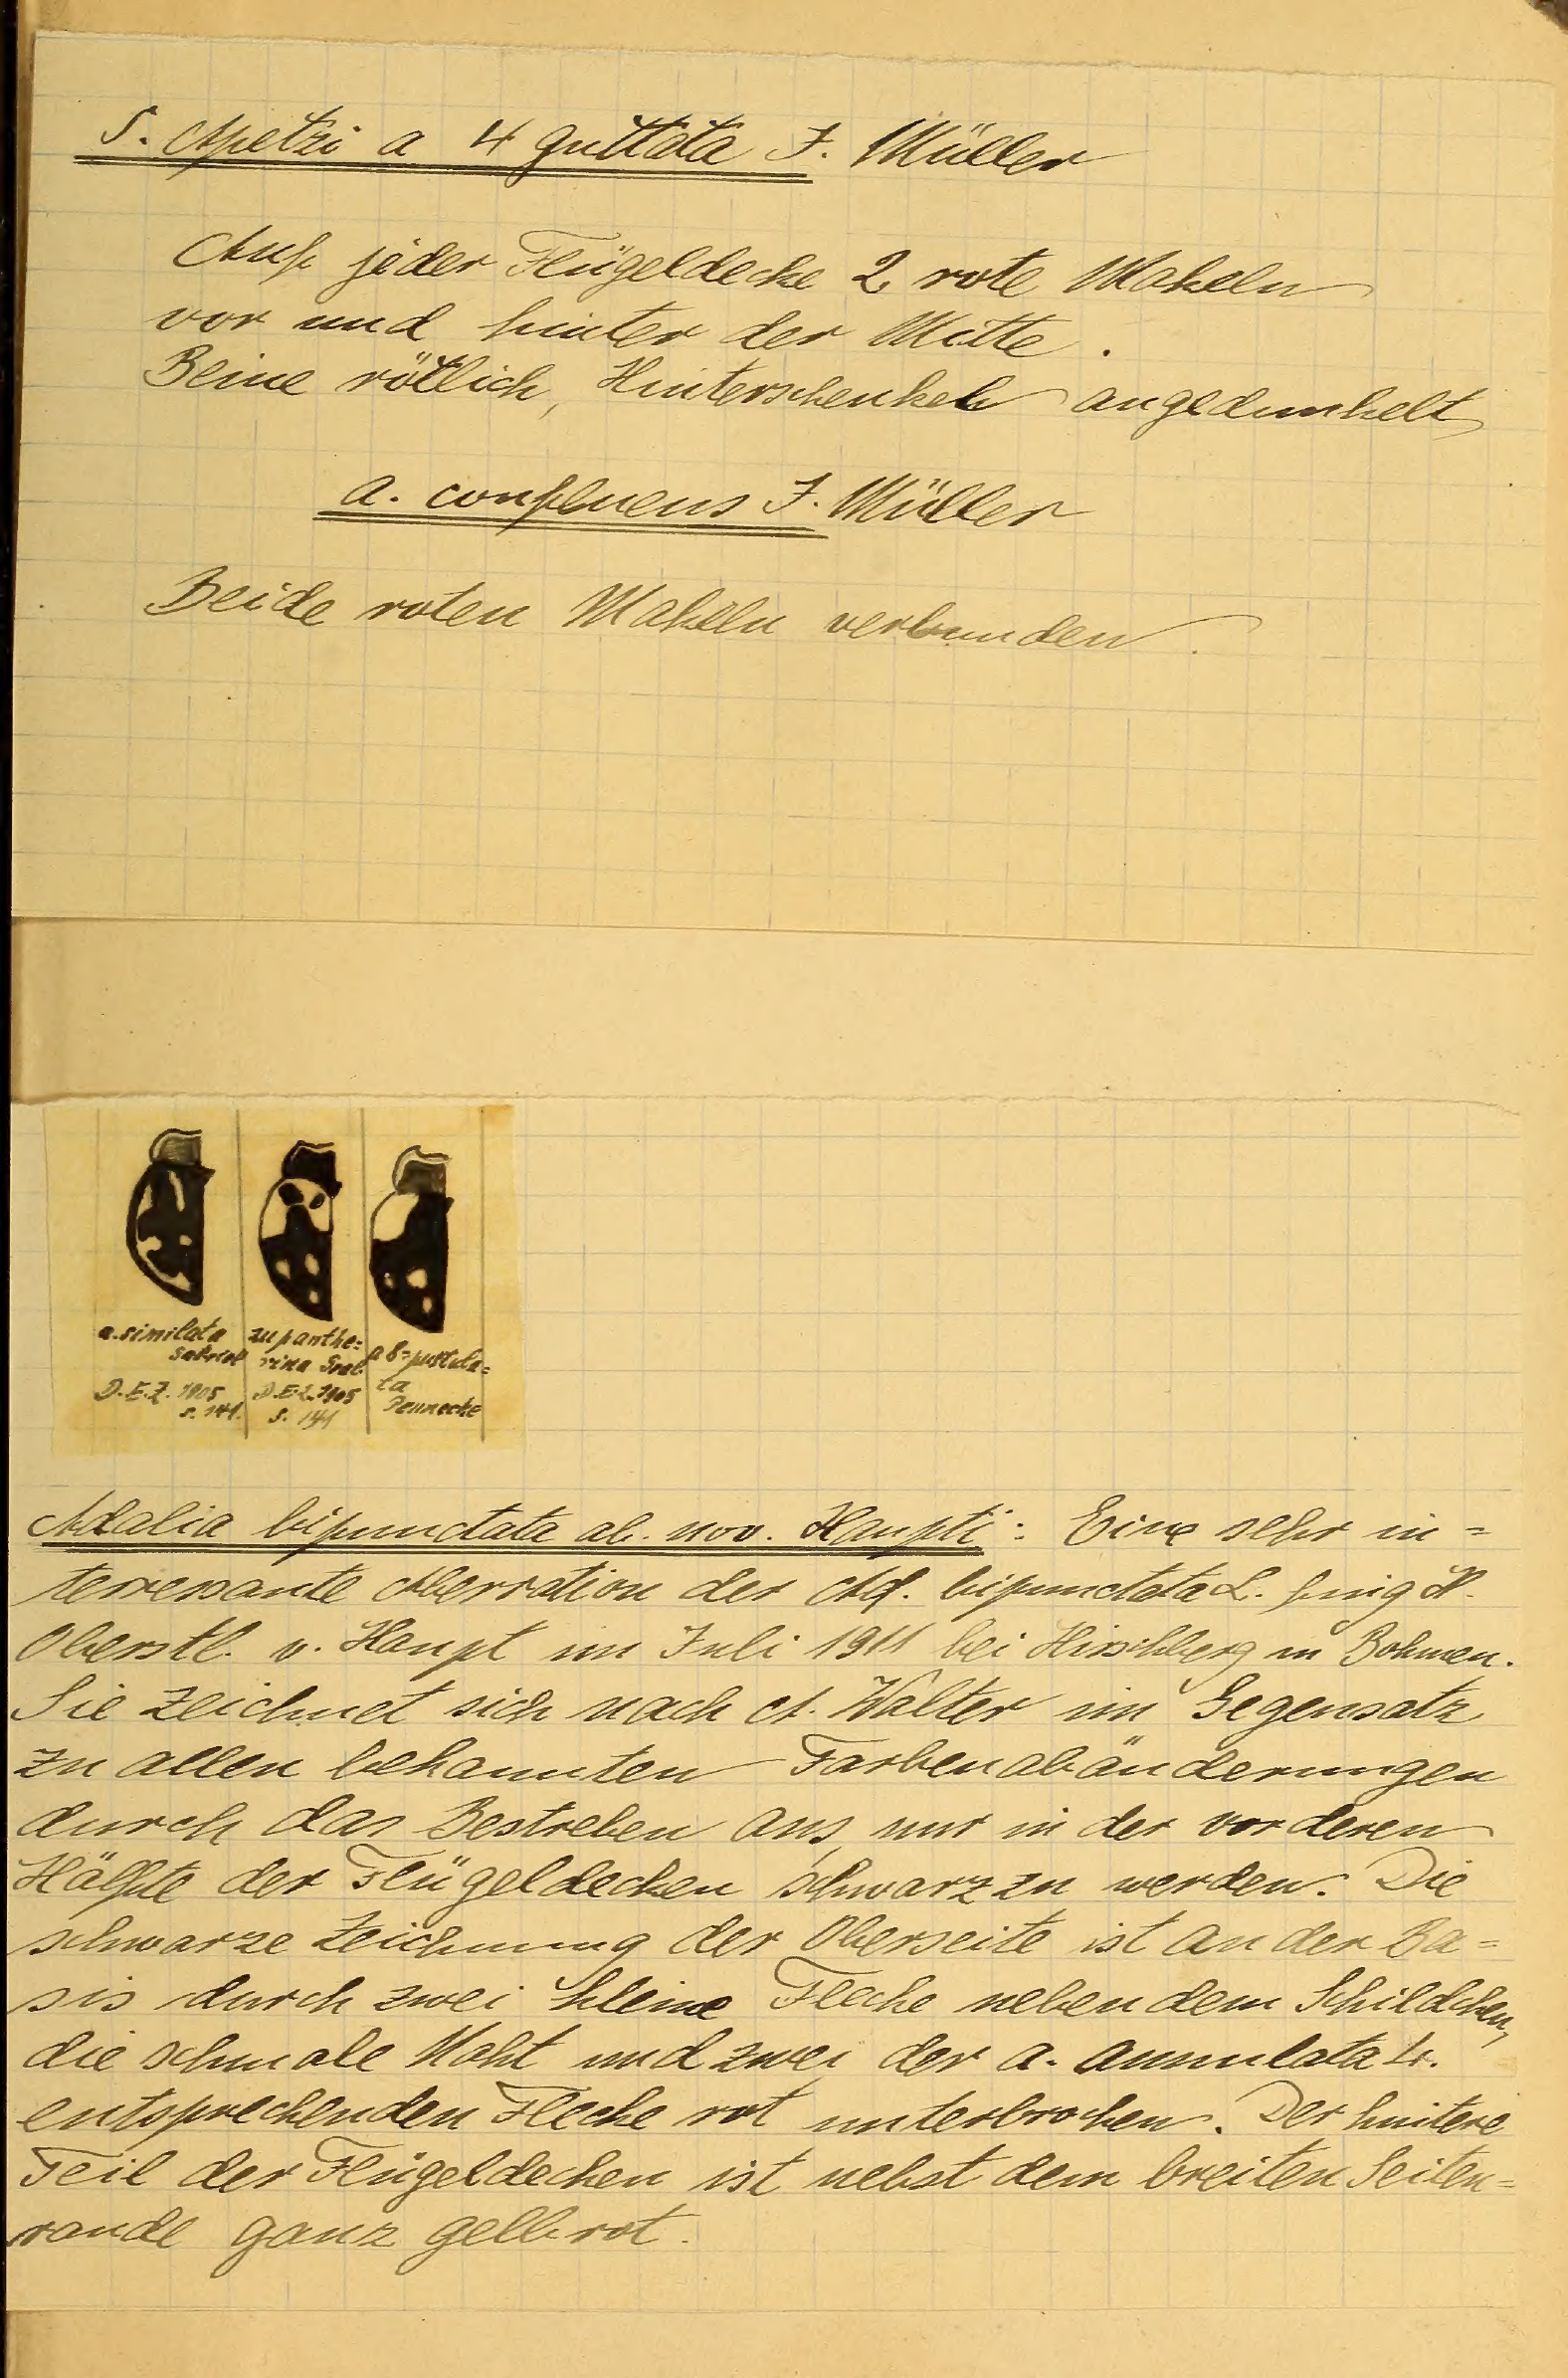 S. Apetzi a 4 guttata J. Müller
Auf jeder Flügeldecke 2 rote Makeln
vor und hinter der Mitte.
Beine rötlich, Hinterschenkel angedunkelt
a. confluens J. Müller
Beide roten Makeln verbunden.
a. similata
Gabriel
D.E.Z. 1905
S. 141.
zu panthe=
rina Grab.
D.E.Z. 1905
S. 141
a 8=pustula=
ta
Pennecke
Adalia bipunctata ab. nov. Haupti: Eine sehr in=
terressante Aberration der Ad. bipunctata L. fing H.
Oberstl. v. Haupt im Juli 1911 bei Hirschberg in Bohmen.
Sie zeichnet sich nach A. Walter im Gegensatz
zu allen bekannten Farbenabänderungen
durch das Bestreben aus, nur in der vorderen
Hälfte der Flügeldecken schwarz zu werden. Die
schwarze Zeichnung der Oberseite ist an der Ba=
sis durch zwei kleine Flecke neben dem Schildchen,
die schmale Naht und zwei der a. annulata L.
entsprechenden Flecke rot unterbrochen. Der hintere
Teil der Flügeldecken ist nebst dem breiten Seiten=
rande ganz gelbrot.